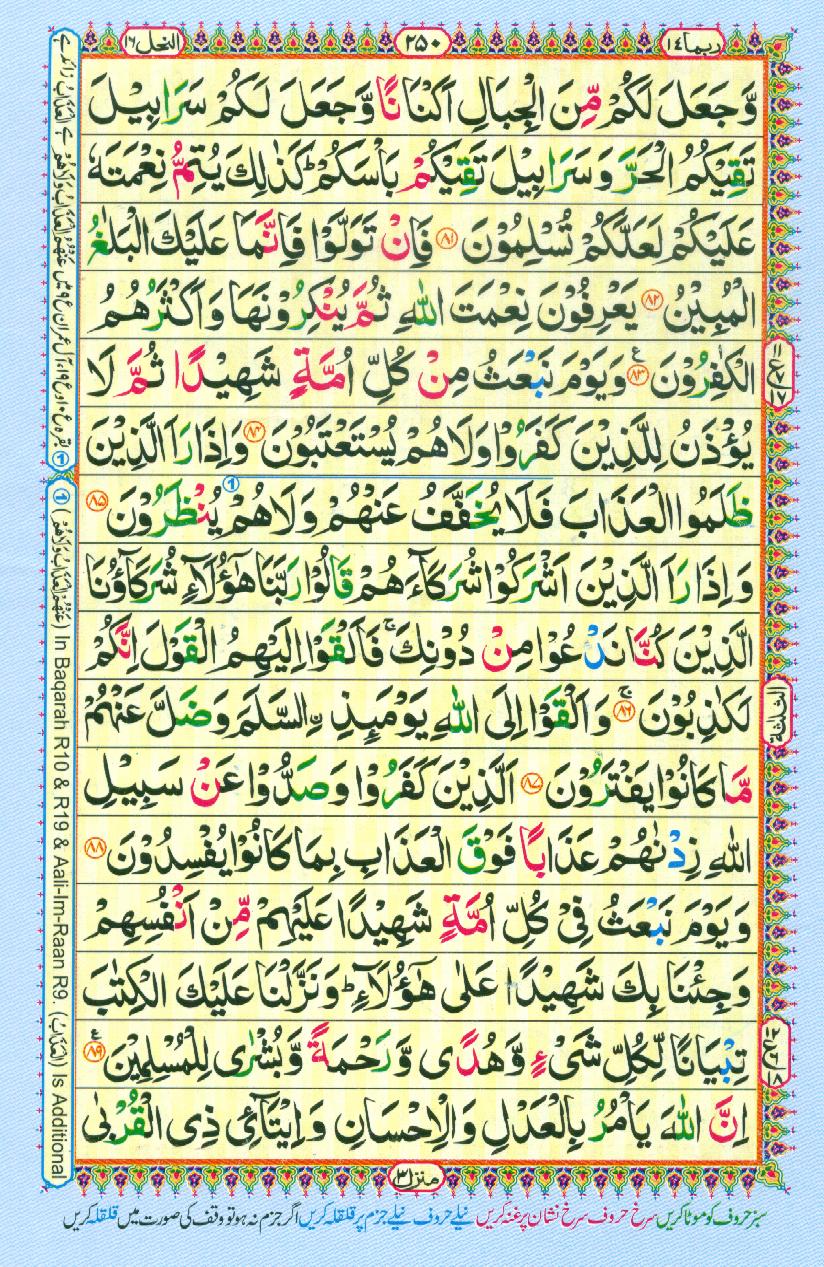 ربما ١٤
٢٥٠
النحل ١٦
وَّجَعَلَ لَكُمْ مِّنَ الْجِبَالِ اَكْنَانًا وَّجَعَلَ لَكُمْ سَرَابِيْلَ
تَقِيْكُمُ الْحَرَّ وَسَرَابِيْلَ تَقِيْكُمْ بَاْسَكُمْ ؕ كَذٰلِكَ يُتِمُّ نِعْمَتَهٗ
عَلَيْكُمْ لَعَلَّكُمْ تُسْلِمُوْنَ ٨١ فَاِنْ تَوَلَّوْا فَاِنَّمَا عَلَيْكَ الْبَلٰغُ
الْمُبِيْنُ ٨٢ يَعْرِفُوْنَ نِعْمَتَ اللّٰهِ ثُمَّ يُنْكِرُوْنَهَا وَاَكْثَرُهُمُ
الْكٰفِرُوْنَ ٨٣ وَيَوْمَ نَبْعَثُ مِنْ كُلِّ اُمَّةٍ شَهِيْدًا ثُمَّ لَا
يُؤْذَنُ لِلَّذِيْنَ كَفَرُوْا وَلَا هُمْ يُسْتَعْتَبُوْنَ ٨٤ وَاِذَا رَاَ الَّذِيْنَ
ظَلَمُوا الْعَذَابَ فَلَا يُخَفَّفُ عَنْهُمْ وَلَا هُمْ يُنْظَرُوْنَ ٨٥
وَاِذَا رَاَ الَّذِيْنَ اَشْرَكُوْا شُرَكَآءَهُمْ قَالُوْا رَبَّنَا هٰٓؤُلَآءِ شُرَكَآؤُنَا
الَّذِيْنَ كُنَّا نَدْعُوْا مِنْ دُوْنِكَ ۚ فَاَلْقَوْا اِلَيْهِمُ الْقَوْلَ اِنَّكُمْ
لَكٰذِبُوْنَ ٨٦ وَاَلْقَوْا اِلَى اللّٰهِ يَوْمَئِذِ ۨالسَّلَمَ وَضَلَّ عَنْهُمْ
مَّا كَانُوْا يَفْتَرُوْنَ ٨٧ اَلَّذِيْنَ كَفَرُوْا وَصَدُّوْا عَنْ سَبِيْلِ
اللّٰهِ زِدْنٰهُمْ عَذَابًا فَوْقَ الْعَذَابِ بِمَا كَانُوْا يُفْسِدُوْنَ ٨٨
وَيَوْمَ نَبْعَثُ فِيْ كُلِّ اُمَّةٍ شَهِيْدًا عَلَيْهِمْ مِّنْ اَنْفُسِهِمْ
وَجِئْنَا بِكَ شَهِيْدًا عَلٰى هٰٓؤُلَآءِ ؕ وَنَزَّلْنَا عَلَيْكَ الْكِتٰبَ
تِبْيَانًا لِّكُلِّ شَيْءٍ وَّهُدًى وَّرَحْمَةً وَّبُشْرٰى لِلْمُسْلِمِيْنَ ٨٩
اِنَّ اللّٰهَ يَاْمُرُ بِالْعَدْلِ وَالْاِحْسَانِ وَاِيْتَآئِ ذِى الْقُرْبٰى
الثلٰثة
منزل ٣
سبز حروف کو موٹا کریں سرخ حروف سرخ نشان پر غنہ کریں نیلے حروف نیلے جزم پر قلقلہ کریں اگر جزم نہ ہو تو وقف کی صورت میں قلقلہ کریں
① (عَنْهُمُ الْعَذَابُ وَلَا هُمْ) In Baqarah R10 & R19 & Aali-Im-Raan R9. (الْعَذَابُ) Is Additional